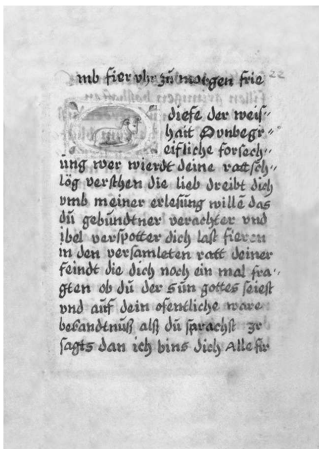 vmb fier vhr zů morgen frie 22
diese der weis=
hait O vnbegr=
eifliche forsch=
ung wer wierdt deine rattsch=
lög versthen die lieb dreibt dich
vmb meiner erlesung wille das
dů gebundtner verachter vnd
ibel verspotter dich last fieren
in den versamleten ratt deiner
feindt die dich noch ein mal fra=
gten ob dů der sůn gottes seiest
vnd auf dein ofentliche ware
bekandtnůß alß dů sprachst Ir
sagts dan ich bins dich Alle fir